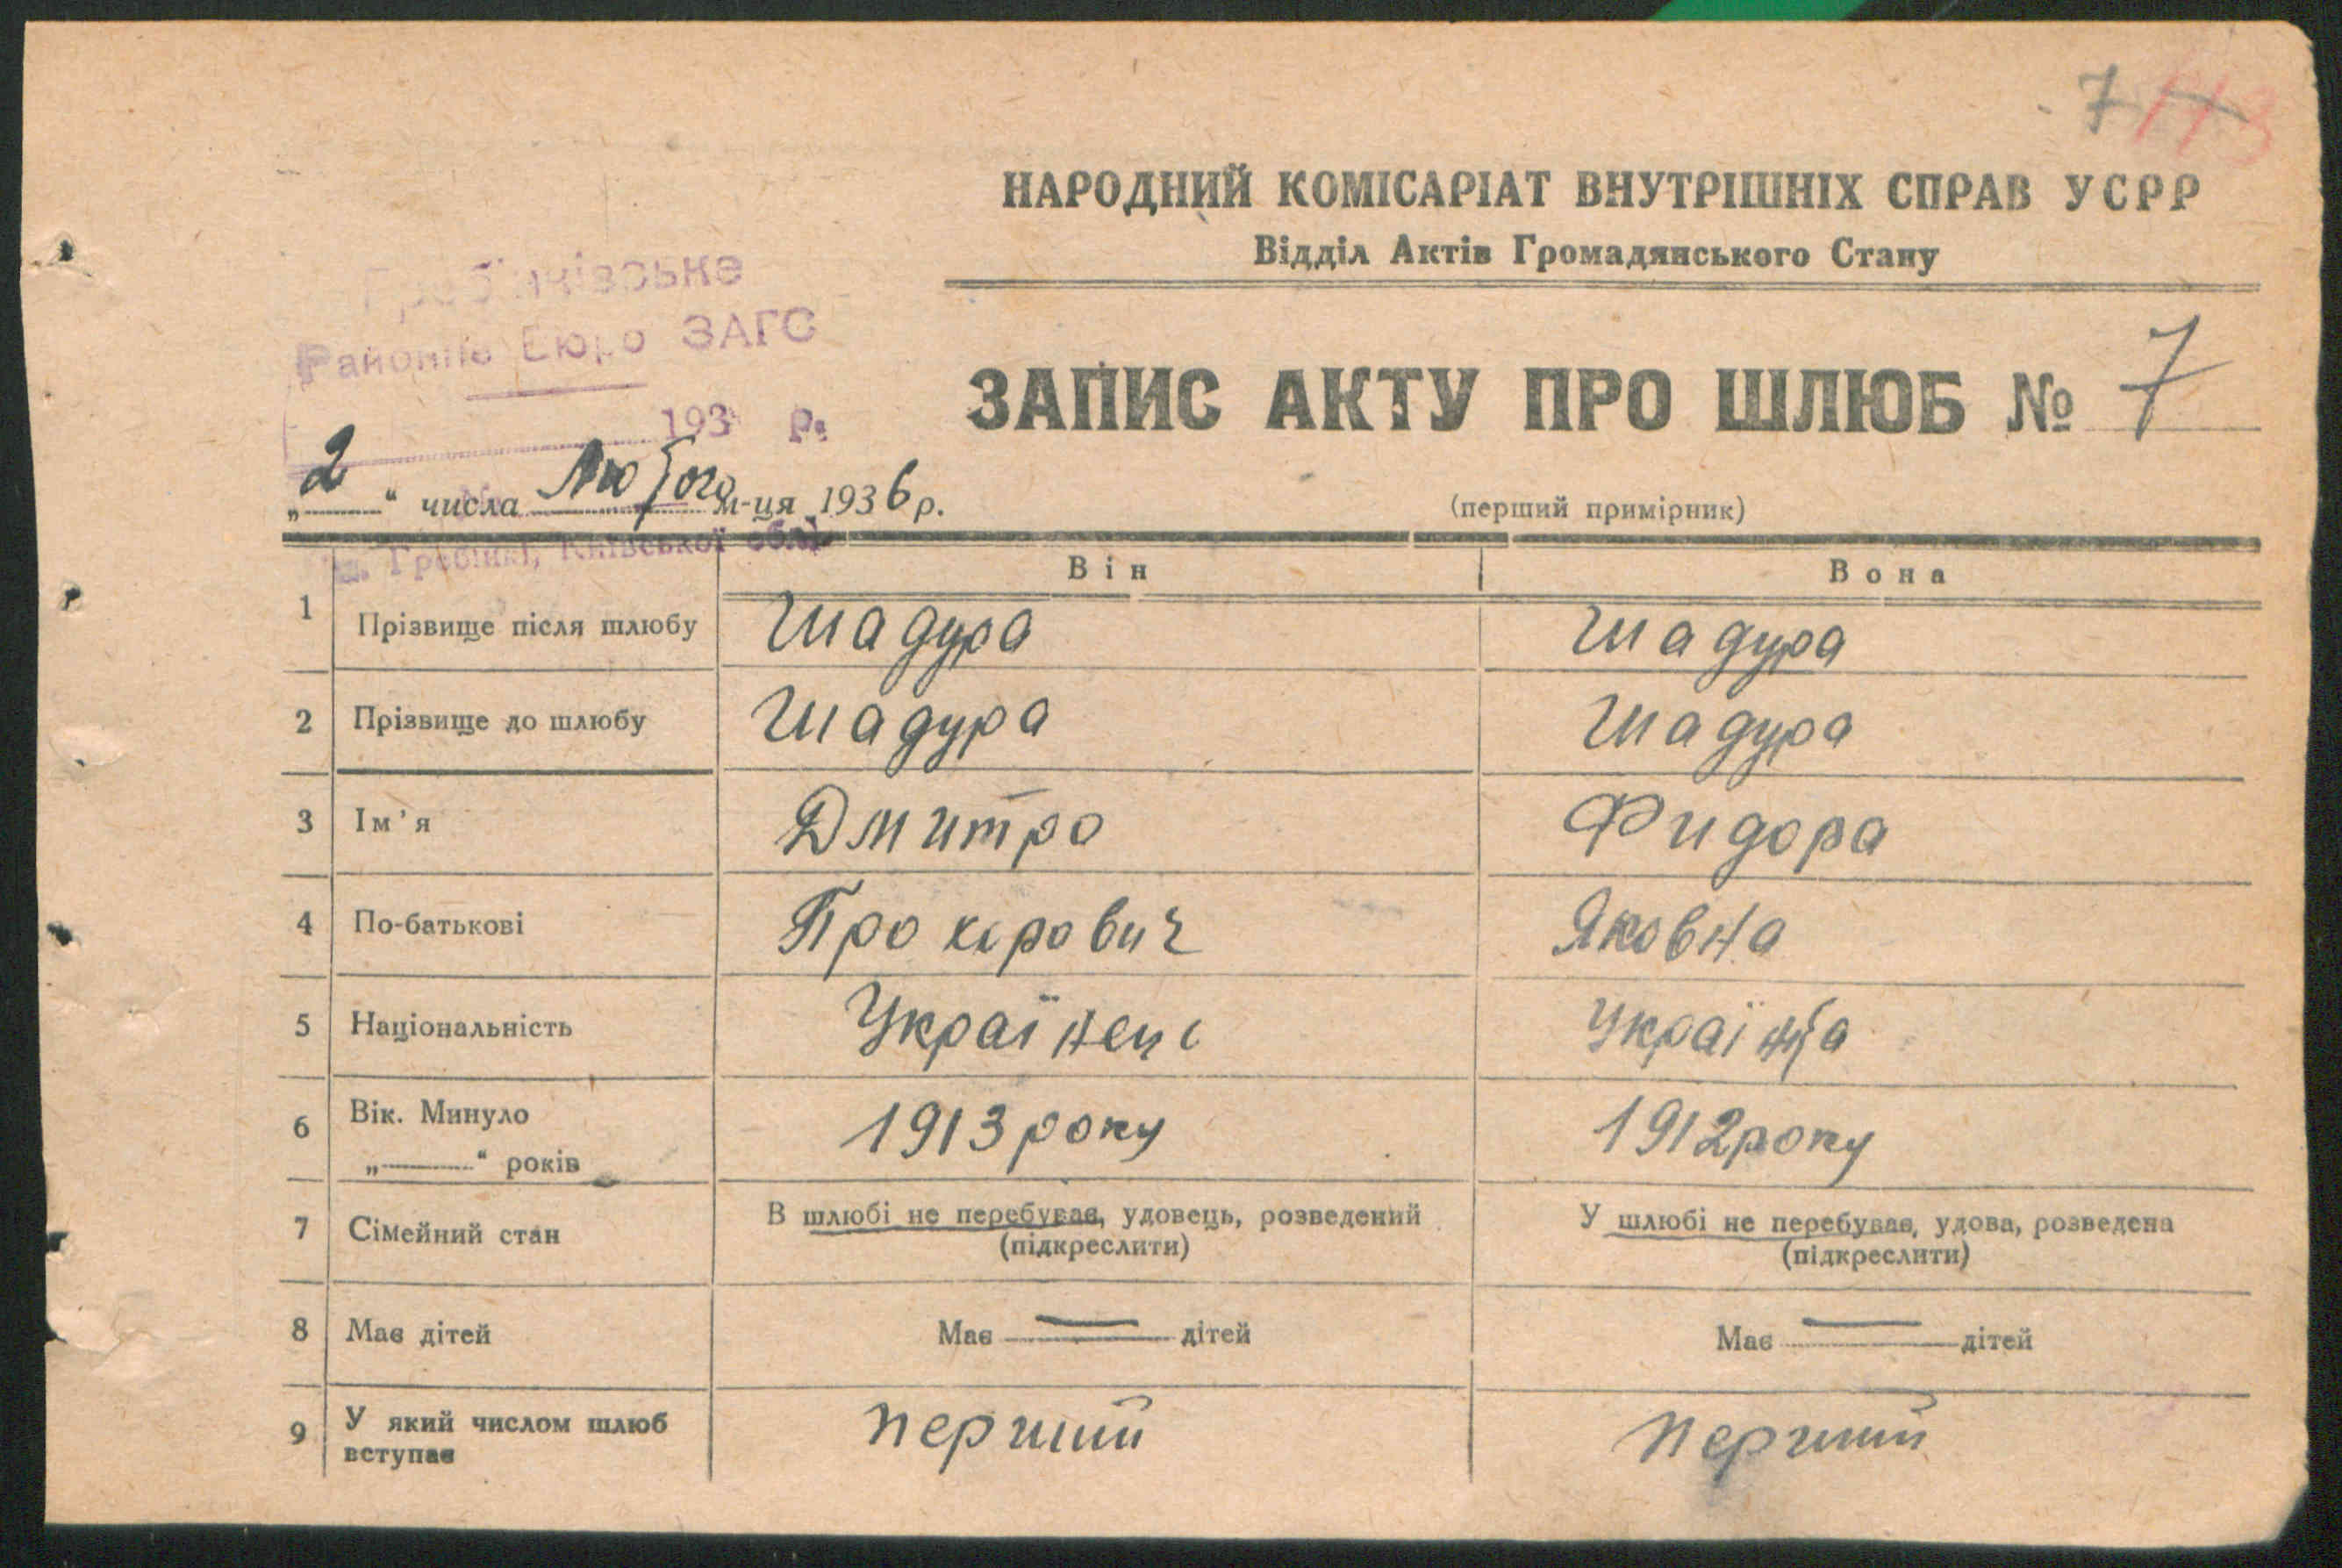 7
НАРОДНИЙ КОМІСАРІАТ ВНУТРІШНІХ СПРАВ УСРР
Відділ Актів Громадянського Стану
Гребінківське
Районне Бюро ЗАГС
193 р.
ЗАПИС АКТУ ПРО ШЛЮБ № 7
„2“ числа Лютого м-ця 1936 р.
(перший примірник)
м. Гребінки, Київської обл.
Він Вона
1 Прізвище після шлюбу Шадура Шадура
2 Прізвище до шлюбу Шадура Шадура
3 Ім'я Дмитро Фидора
4 По-батькові Яковна
5 Національність Українець
6 Вік. Минуло 1913 року 1912 року
„——“ років
7 Сімейний стан В шлюбі не перебував, удовець, розведений У шлюбі не перебував, удова, розведена
(підкреслити) (підкреслити)
8 Має дітей Має — дітей Має — дітей
9 У який числом шлюб перший перший
вступає